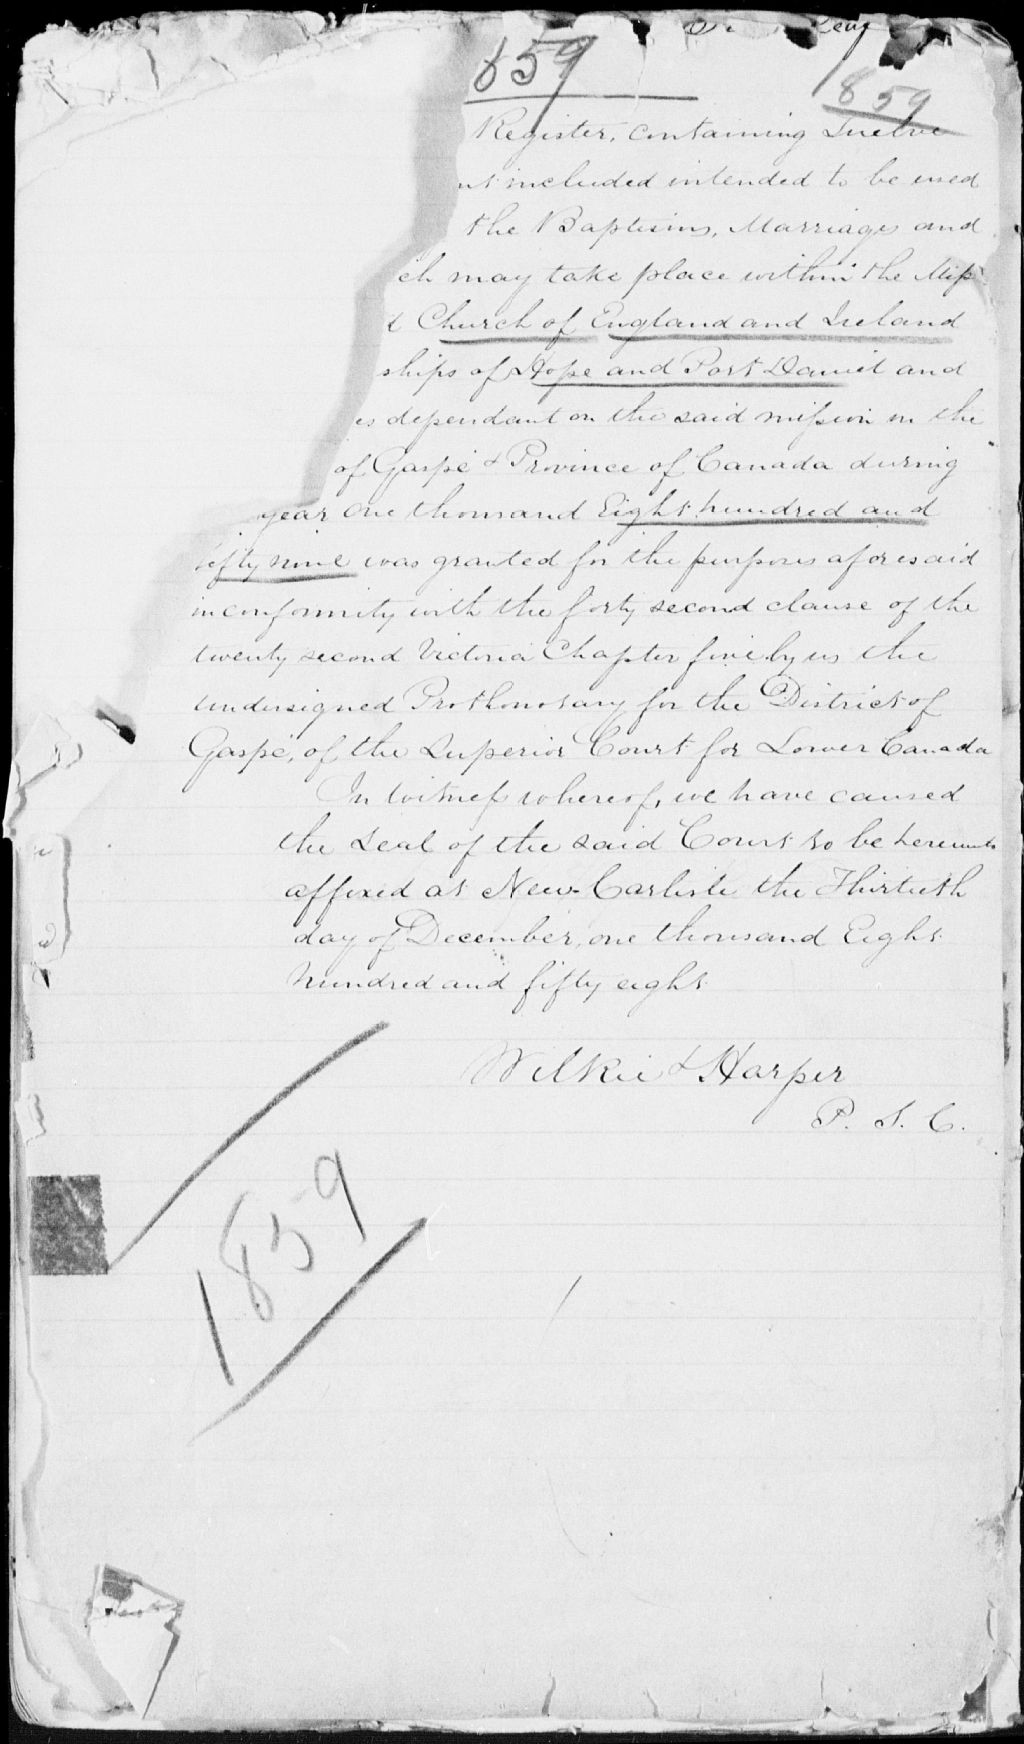 Leaf
859
1859
Register, containing Twelve
included intended to be used
the Baptisms, Marriages and
ch may take place within the Miss
Church of England and Ireland
ships of Hope and Port Daniel and
es dependant on the said mission in the
of Gaspé & Province of Canada during
year One thousand Eight hundred and
fifty nine was granted for the purposes aforesaid
in conformity with the forty second clause of the
twenty second Victoria Chapter five by us the
undersigned Prothonotary for the District of
Gaspé, of the Superior Court for Lower Canada
In witness whereof, we have caused
the Seal of the said Court to be hereunto
affixed at New Carlisle the Thirtieth
day of December, one thousand Eight
hundred and fifty eight
Wilkie & Harper
P. S. C.
1859